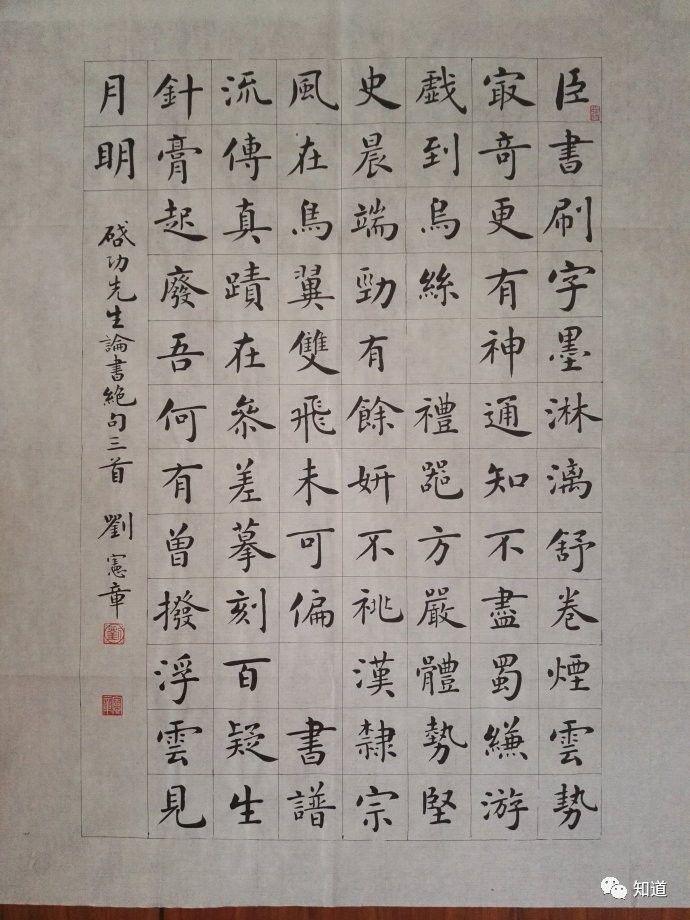 臣書刷字墨淋漓舒卷煙雲勢
㝡奇更有神通知不盡蜀縑游
戯到烏絲　禮噐方嚴體勢堅
史晨端勁有餘妍不祧漢隸宗
風在鳥翼雙飛未可偏　書譜
流傳真蹟在叅差摹刻百疑生
針膏起廢吾何有曾撥浮雲見
月明
啓功先生論書絶句三首 劉憲章
知道